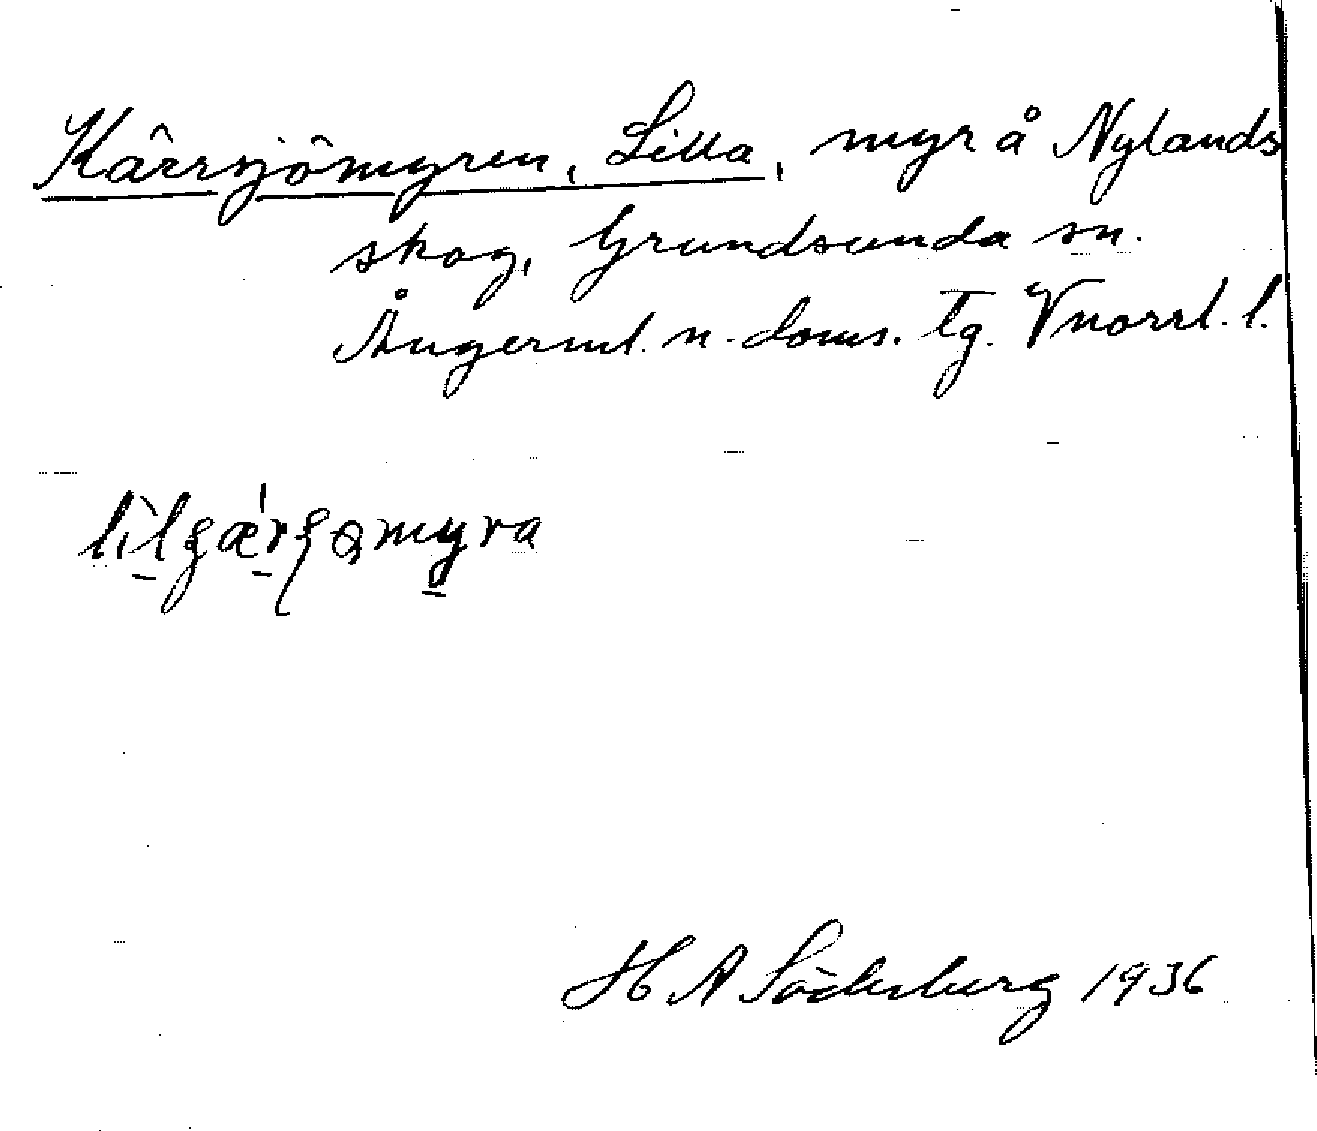 Kärrsjömyren, Lilla, myr å Nylands
skog, Grundsunda sn.
Ångerml. n. doms. tg. Vnorrl. l.
H A Söderberg 1936